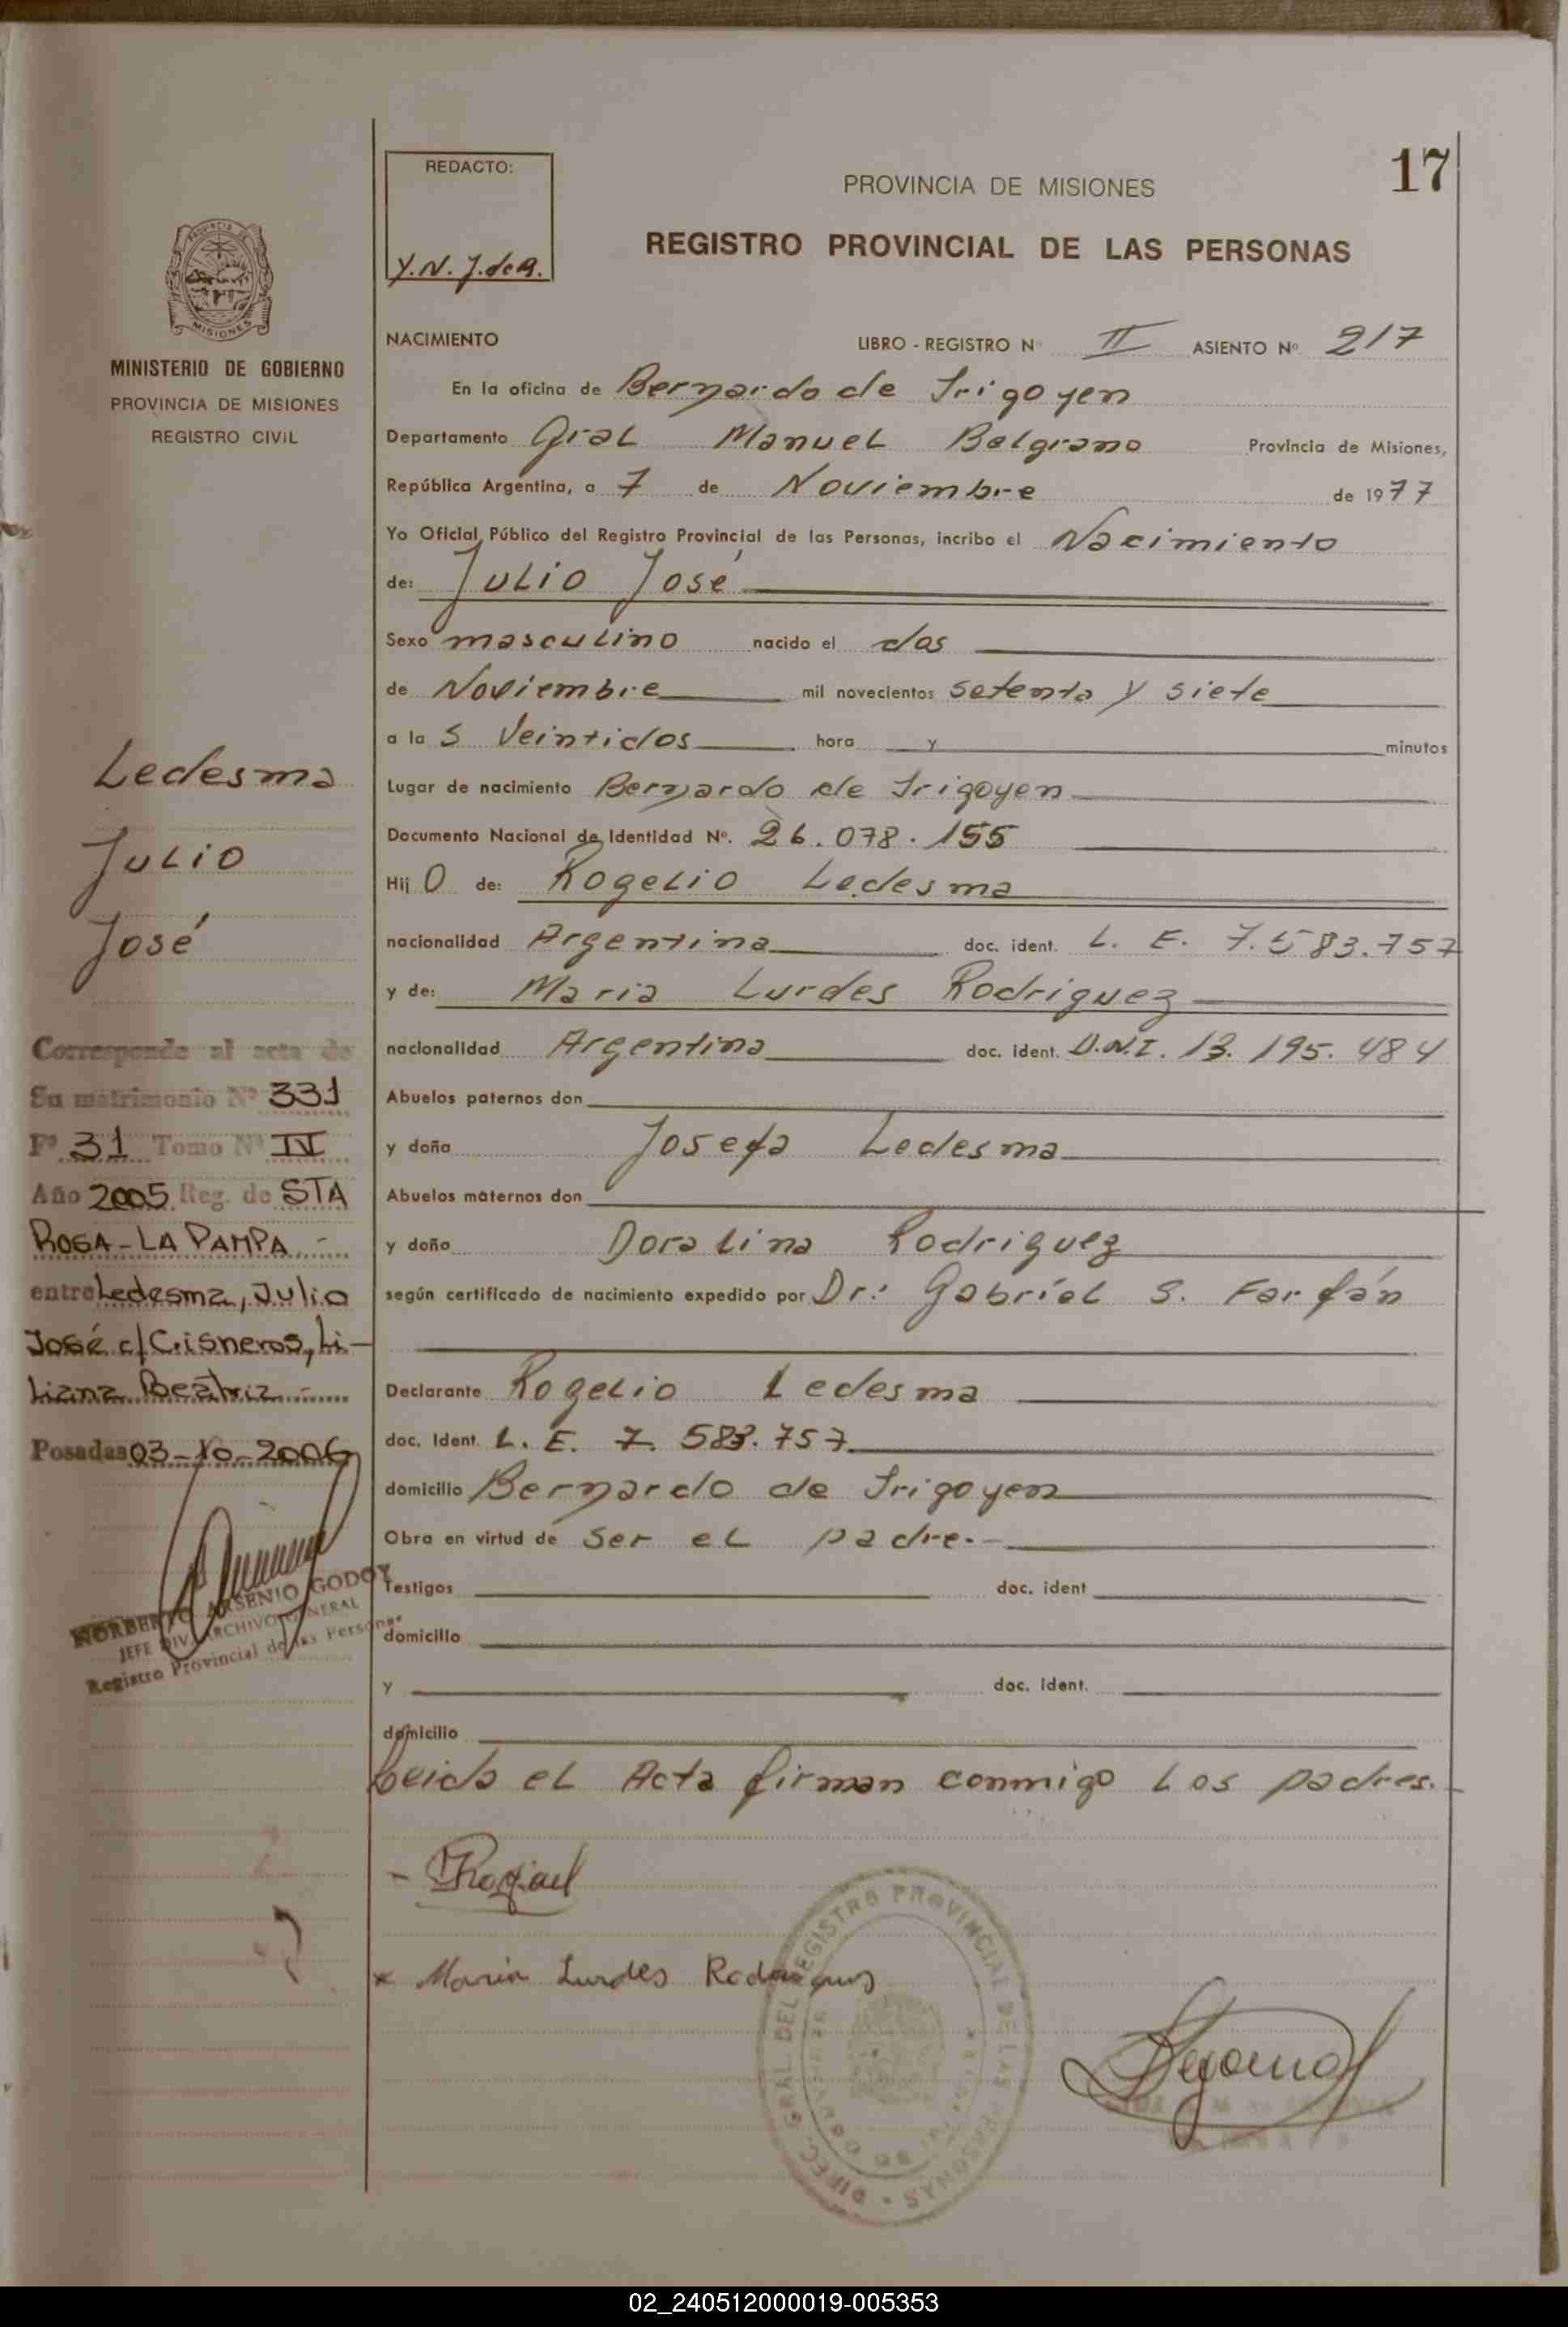 17
REDACTO:
Y.N.J.deA.
PROVINCIA DE MISIONES
REGISTRO PROVINCIAL DE LAS PERSONAS
PROVINCIA DE
MISIONES
MINISTERIO DE GOBIERNO
PROVINCIA DE MISIONES
REGISTRO CIVIL
NACIMIENTO LIBRO - REGISTRO Nº II ASIENTO Nº 217
En la oficina de Bernardo de Irigoyen
Departamento Gral Manuel Belgrano Provincia de Misiones,
República Argentina, a 7 de Noviembre de 1977
Yo Oficial Público del Registro Provincial de las Personas, incribo el Nacimiento
de: Julio José
Sexo masculino nacido el dos
de Noviembre mil novecientos setenta y siete
a la s Veintidos hora y minutos
Lugar de nacimiento Bernardo de Irigoyen
Documento Nacional de Identidad Nº. 26.078.155
Hij o de: Rogelio Ledesma
nacionalidad Argentina doc. ident. L. E. 7.583.757
y de: Maria Lurdes Rodriguez
nacionalidad Argentina doc. ident. D.N.I. 13.195.484
Abuelos paternos don
y doña Josefa Ledesma
Abuelos maternos don
y doña Doralina Rodriguez
según certificado de nacimiento expedido por Dr.: Gabriel S. Farfán
Declarante Rogelio Ledesma
doc. Ident. L. E. 7. 583.757
domicilio Bernardo de Irigoyen
Obra en virtud de ser el padre.-
Testigos doc. ident
domicilio
y doc. ident.
domicilio
Leida el Acta firman conmigo los padres.-
Maria Lurdes Rodriguez
DIREC. GRAL. DEL REGISTRO PROVINCIAL DE LAS PERSONAS
Ledesma
Julio
José
Corresponde al acta de
Su matrimonio Nº 331
Fº 31 Tomo Nº IV
Año 2005 Reg. de STA
ROSA - LA PAMPA -
entre Ledesma, Julio
José c/ Cisneros, Li-
liana Beatriz -
Posadas 03-10-2006
NORBERTO ARSENIO GODOY
JEFE DIV. ARCHIVO GENERAL
Registro Provincial de las Personas
02_240512000019-005353